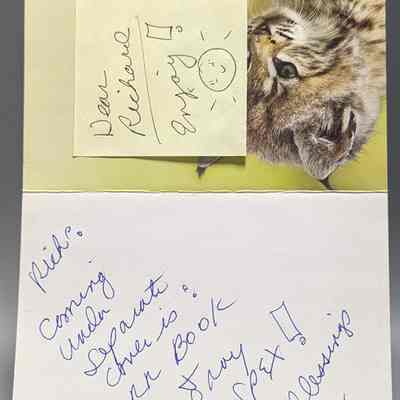 Dear
Richard
Enjoy!
Rich:
Coming
Under
Separate
Cover is:
Book
SPEX!
Blessings